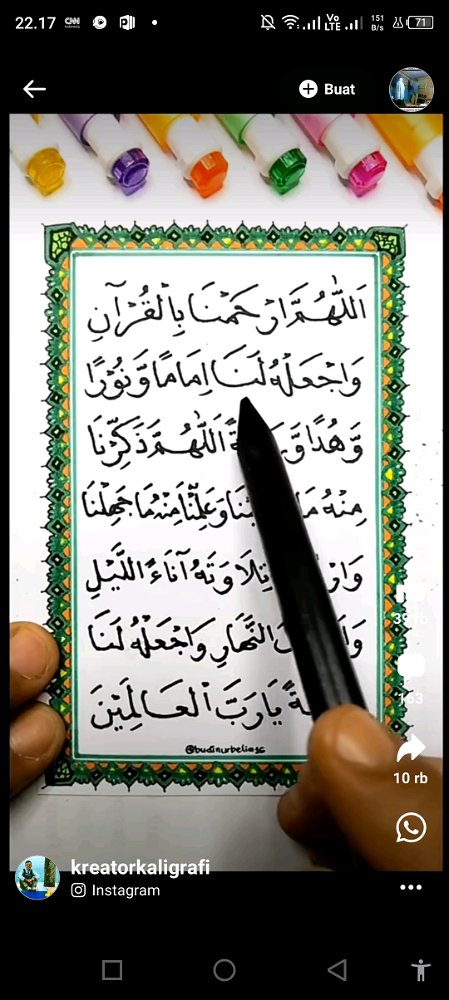 22.17
CNN
Vo
LTE
151
B/s
71
Buat
اَللّٰهُمَّ ارْحَمْنَا بِالْقُرْآنِ
وَاجْعَلْهُ لَنَا اِمَامًا وَّنُوْرًا
وَّهُدًا وَّ ةً اَللّٰهُمَّ ذَكِّرْنَا
مِنْهُ مَا وَعَلِّمْنَا مِنْهُ مَا جَهِلْنَا
تِلَاوَتَهُ آنَاءَ الَّيْلِ
النَّهَارِ وَاجْعَلْهُ لَنَا
يَارَبَّ الْعَالَمِيْنَ
@budinurbelia96
163
10 rb
kreatorkaligrafi
Instagram